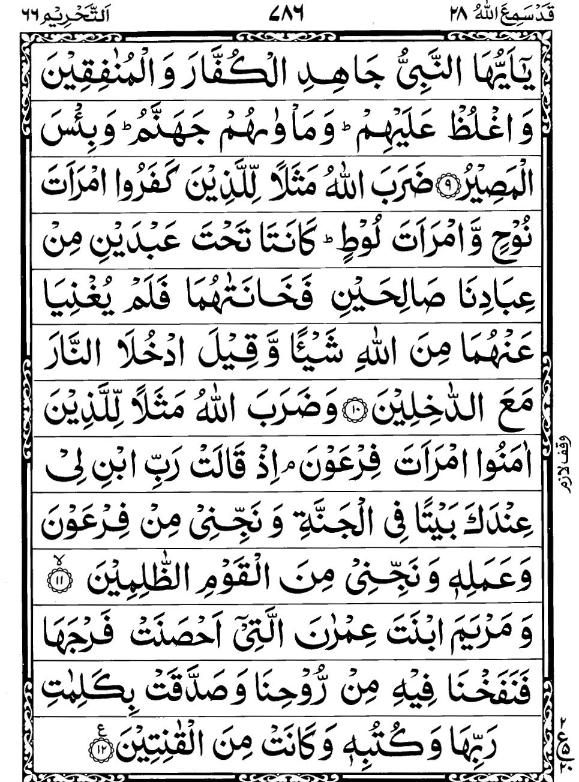 قَدْ سَمِعَ اللهُ ٢٨ ٧٨٦ اَلتَّحْرِيْم ٦٦
يٰۤاَيُّهَا النَّبِىُّ جَاهِدِ الْكُفَّارَ وَ الْمُنٰفِقِيْنَ
وَ اغْلُظْ عَلَيْهِمْ ؕ وَ مَاْوٰىهُمْ جَهَنَّمُ ؕ وَ بِئْسَ
الْمَصِيْرُ ۝۹ ضَرَبَ اللهُ مَثَلًا لِّلَّذِيْنَ كَفَرُوا امْرَاَتَ
نُوْحٍ وَّ امْرَاَتَ لُوْطٍ ؕ كَانَتَا تَحْتَ عَبْدَيْنِ مِنْ
عِبَادِنَا صَالِحَيْنِ فَخَانَتٰهُمَا فَلَمْ يُغْنِيَا
عَنْهُمَا مِنَ اللهِ شَيْـًٔا وَّ قِيْلَ ادْخُلَا النَّارَ
مَعَ الدّٰخِلِيْنَ ۝۱۰ وَ ضَرَبَ اللهُ مَثَلًا لِّلَّذِيْنَ
اٰمَنُوا امْرَاَتَ فِرْعَوْنَ ۘ اِذْ قَالَتْ رَبِّ ابْنِ لِىْ
وقف لازم
عِنْدَكَ بَيْتًا فِى الْجَنَّةِ وَ نَجِّنِىْ مِنْ فِرْعَوْنَ
وَ عَمَلِهٖ وَ نَجِّنِىْ مِنَ الْقَوْمِ الظّٰلِمِيْنَ ۝۱۱ ۙ
وَ مَرْيَمَ ابْنَتَ عِمْرٰنَ الَّتِىْۤ اَحْصَنَتْ فَرْجَهَا
فَنَفَخْنَا فِيْهِ مِنْ رُّوْحِنَا وَ صَدَّقَتْ بِكَلِمٰتِ
رَبِّهَا وَ كُتُبِهٖ وَ كَانَتْ مِنَ الْقٰنِتِيْنَ ۝۱۲ ع